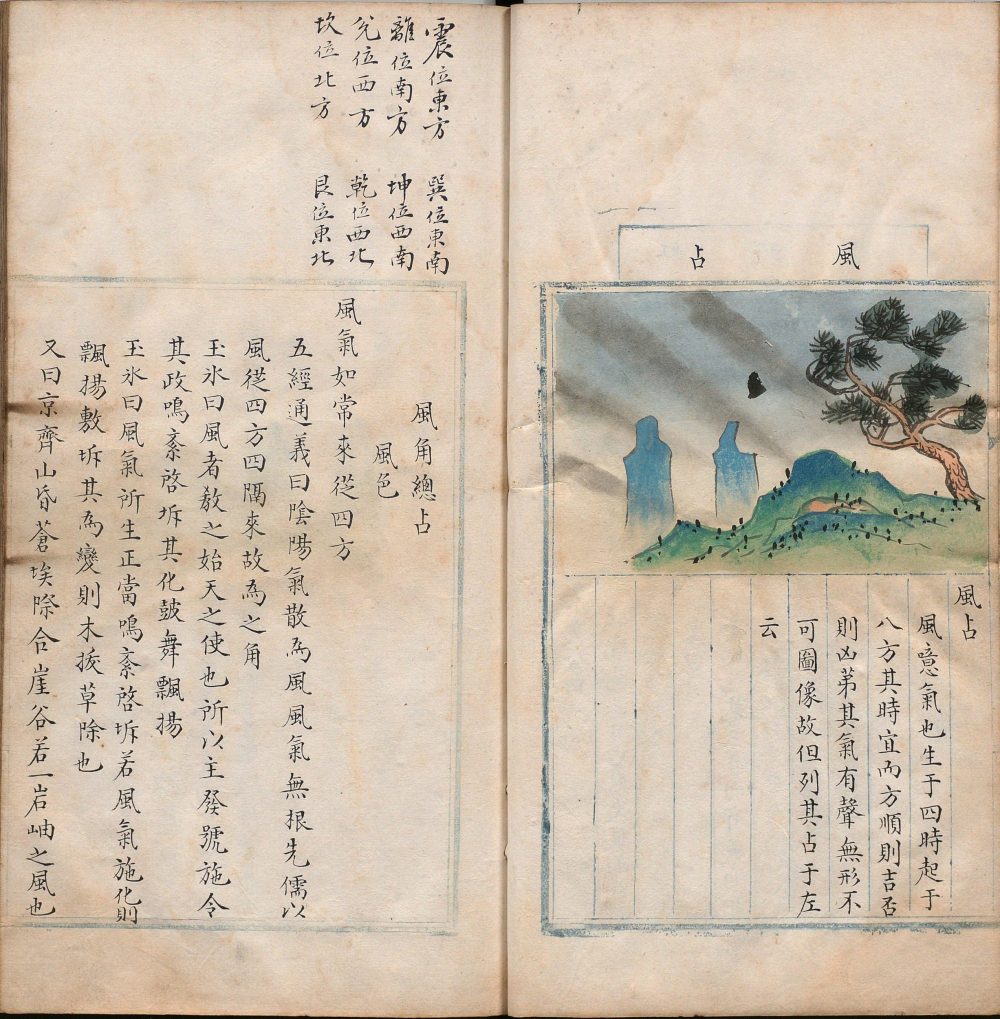 風占
風占
風意氣也生于四時起于
八方其時宜而方順則吉否
則凶苐其氣有聲無形不
可圖像故但列其占于左
云
震位東方 巽位東南
離位南方 坤位西南
兊位西方 乾位西北
坎位北方 艮位東北
風角總占
風色
風氣如常來從四方
五經通義曰陰陽氣散為風風氣無根先儒以
風從四方四隅來故為之角
玉氷曰風者敎之始天之使也所以主發號施令
其政鳴紊啓坼其化皷舞飄揚
玉氷曰風氣所生正當鳴紊啓坼若風氣施化則
飄揚敷坼其為變則木拔草除也
又曰京齊山昏蒼埃際合崖谷若一岩岫之風也